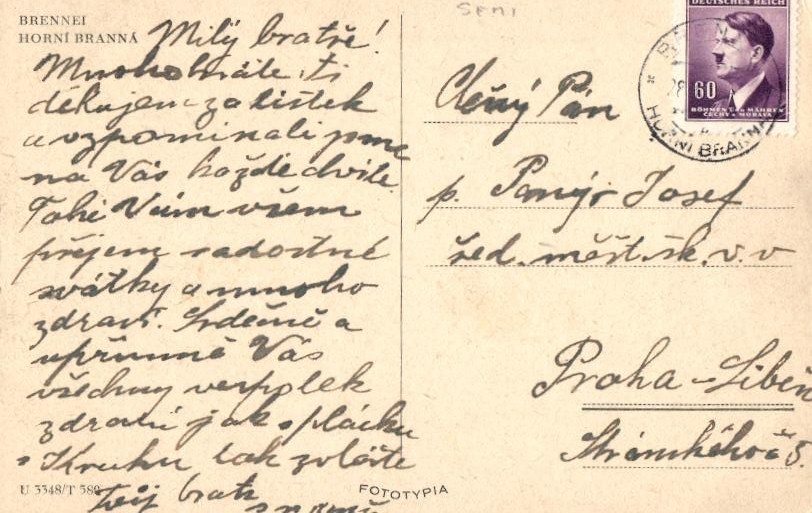 BRENNEI
HORNÍ BRANNÁ
Milý bratře!
Mnohokráte ti
děkujem za lístek
a vzpomínali jsme
na Vás každé chvíle.
Také Vám všem
přejem radostné
svátky a mnoho
zdraví. Srdečně a
upřímně Vás
všechny
zdraví jak
tak zvláště
Tvůj bratr
U 3348/T 580
FOTOTYPIA
DEUTSCHES REICH
60
BÖHMEN U. MÄHREN
ČECHY A MORAVA
HORNÍ BRANNÁ
Pán
p. Josef
řed. měšť. šk. v. v
Praha - Libeň